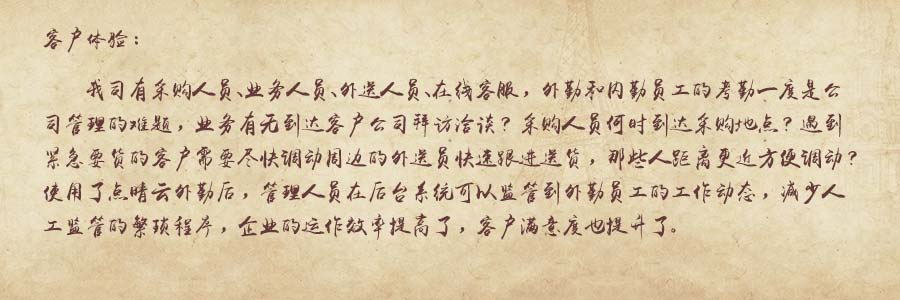 客户体验：
我司有采购人员、业务人员、外送人员、在线客服，外勤和内勤员工的考勤一度是公
司管理的难题，业务有无到达客户公司拜访洽谈？采购人员何时到达采购地点？遇到
紧急要货的客户需要尽快调动周边的外送员快速跟进送货，那些人距离更近方便调动？
使用了点晴云外勤后，管理人员在后台系统可以监管到外勤员工的工作动态，减少人
工监管的繁琐程序，企业的运作效率提高了，客户满意度也提升了。